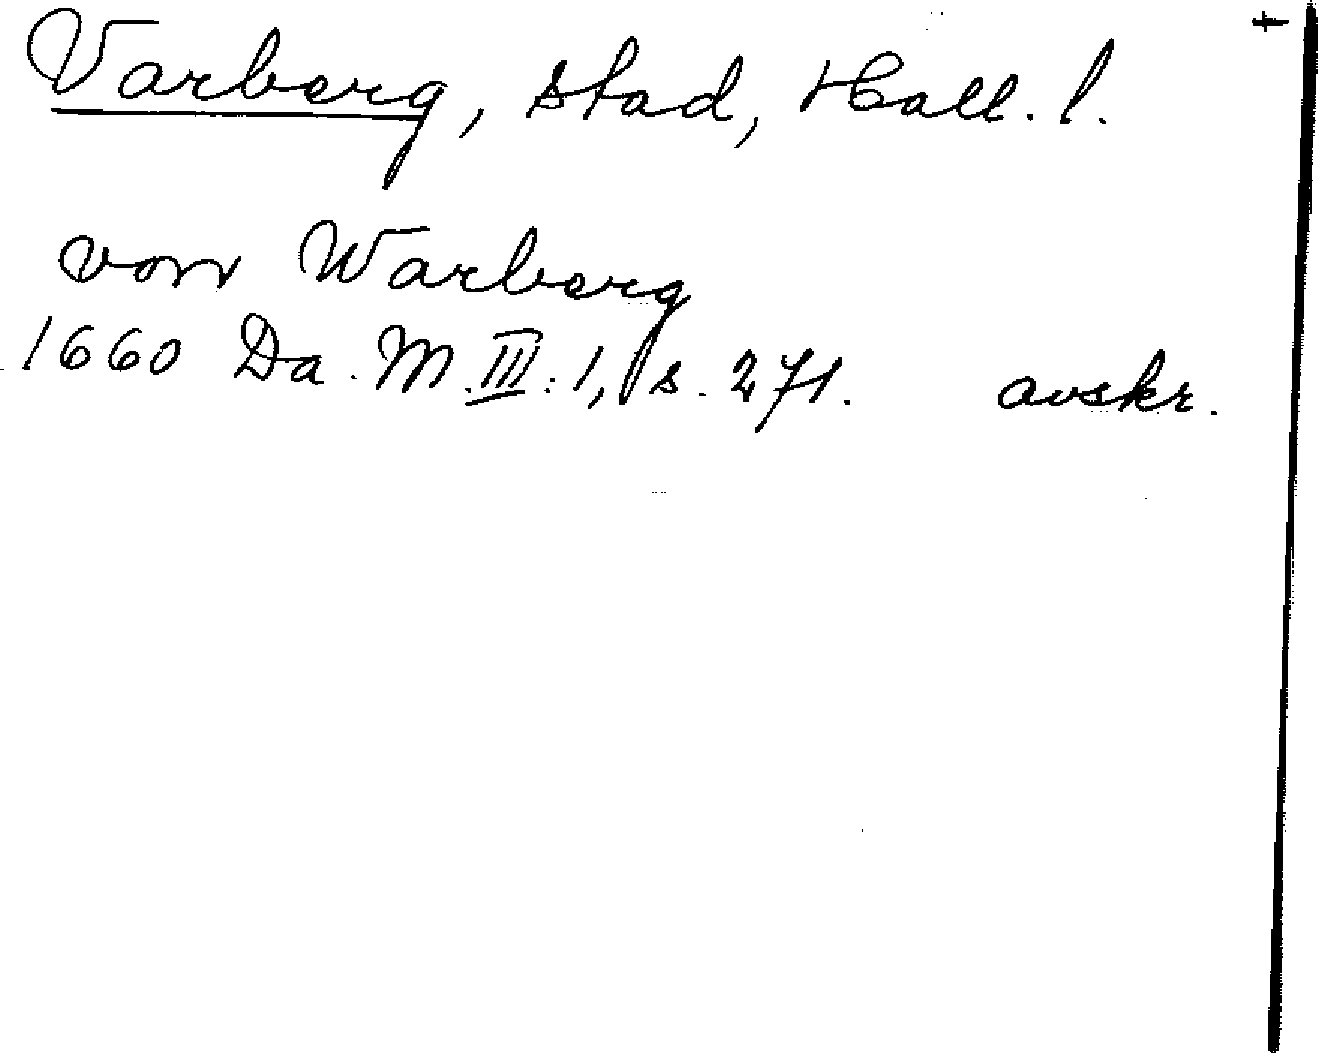 Varberg, stad, Hall. l.
von Warberg
1660 Da. M. III: 1, s. 271. avskr.